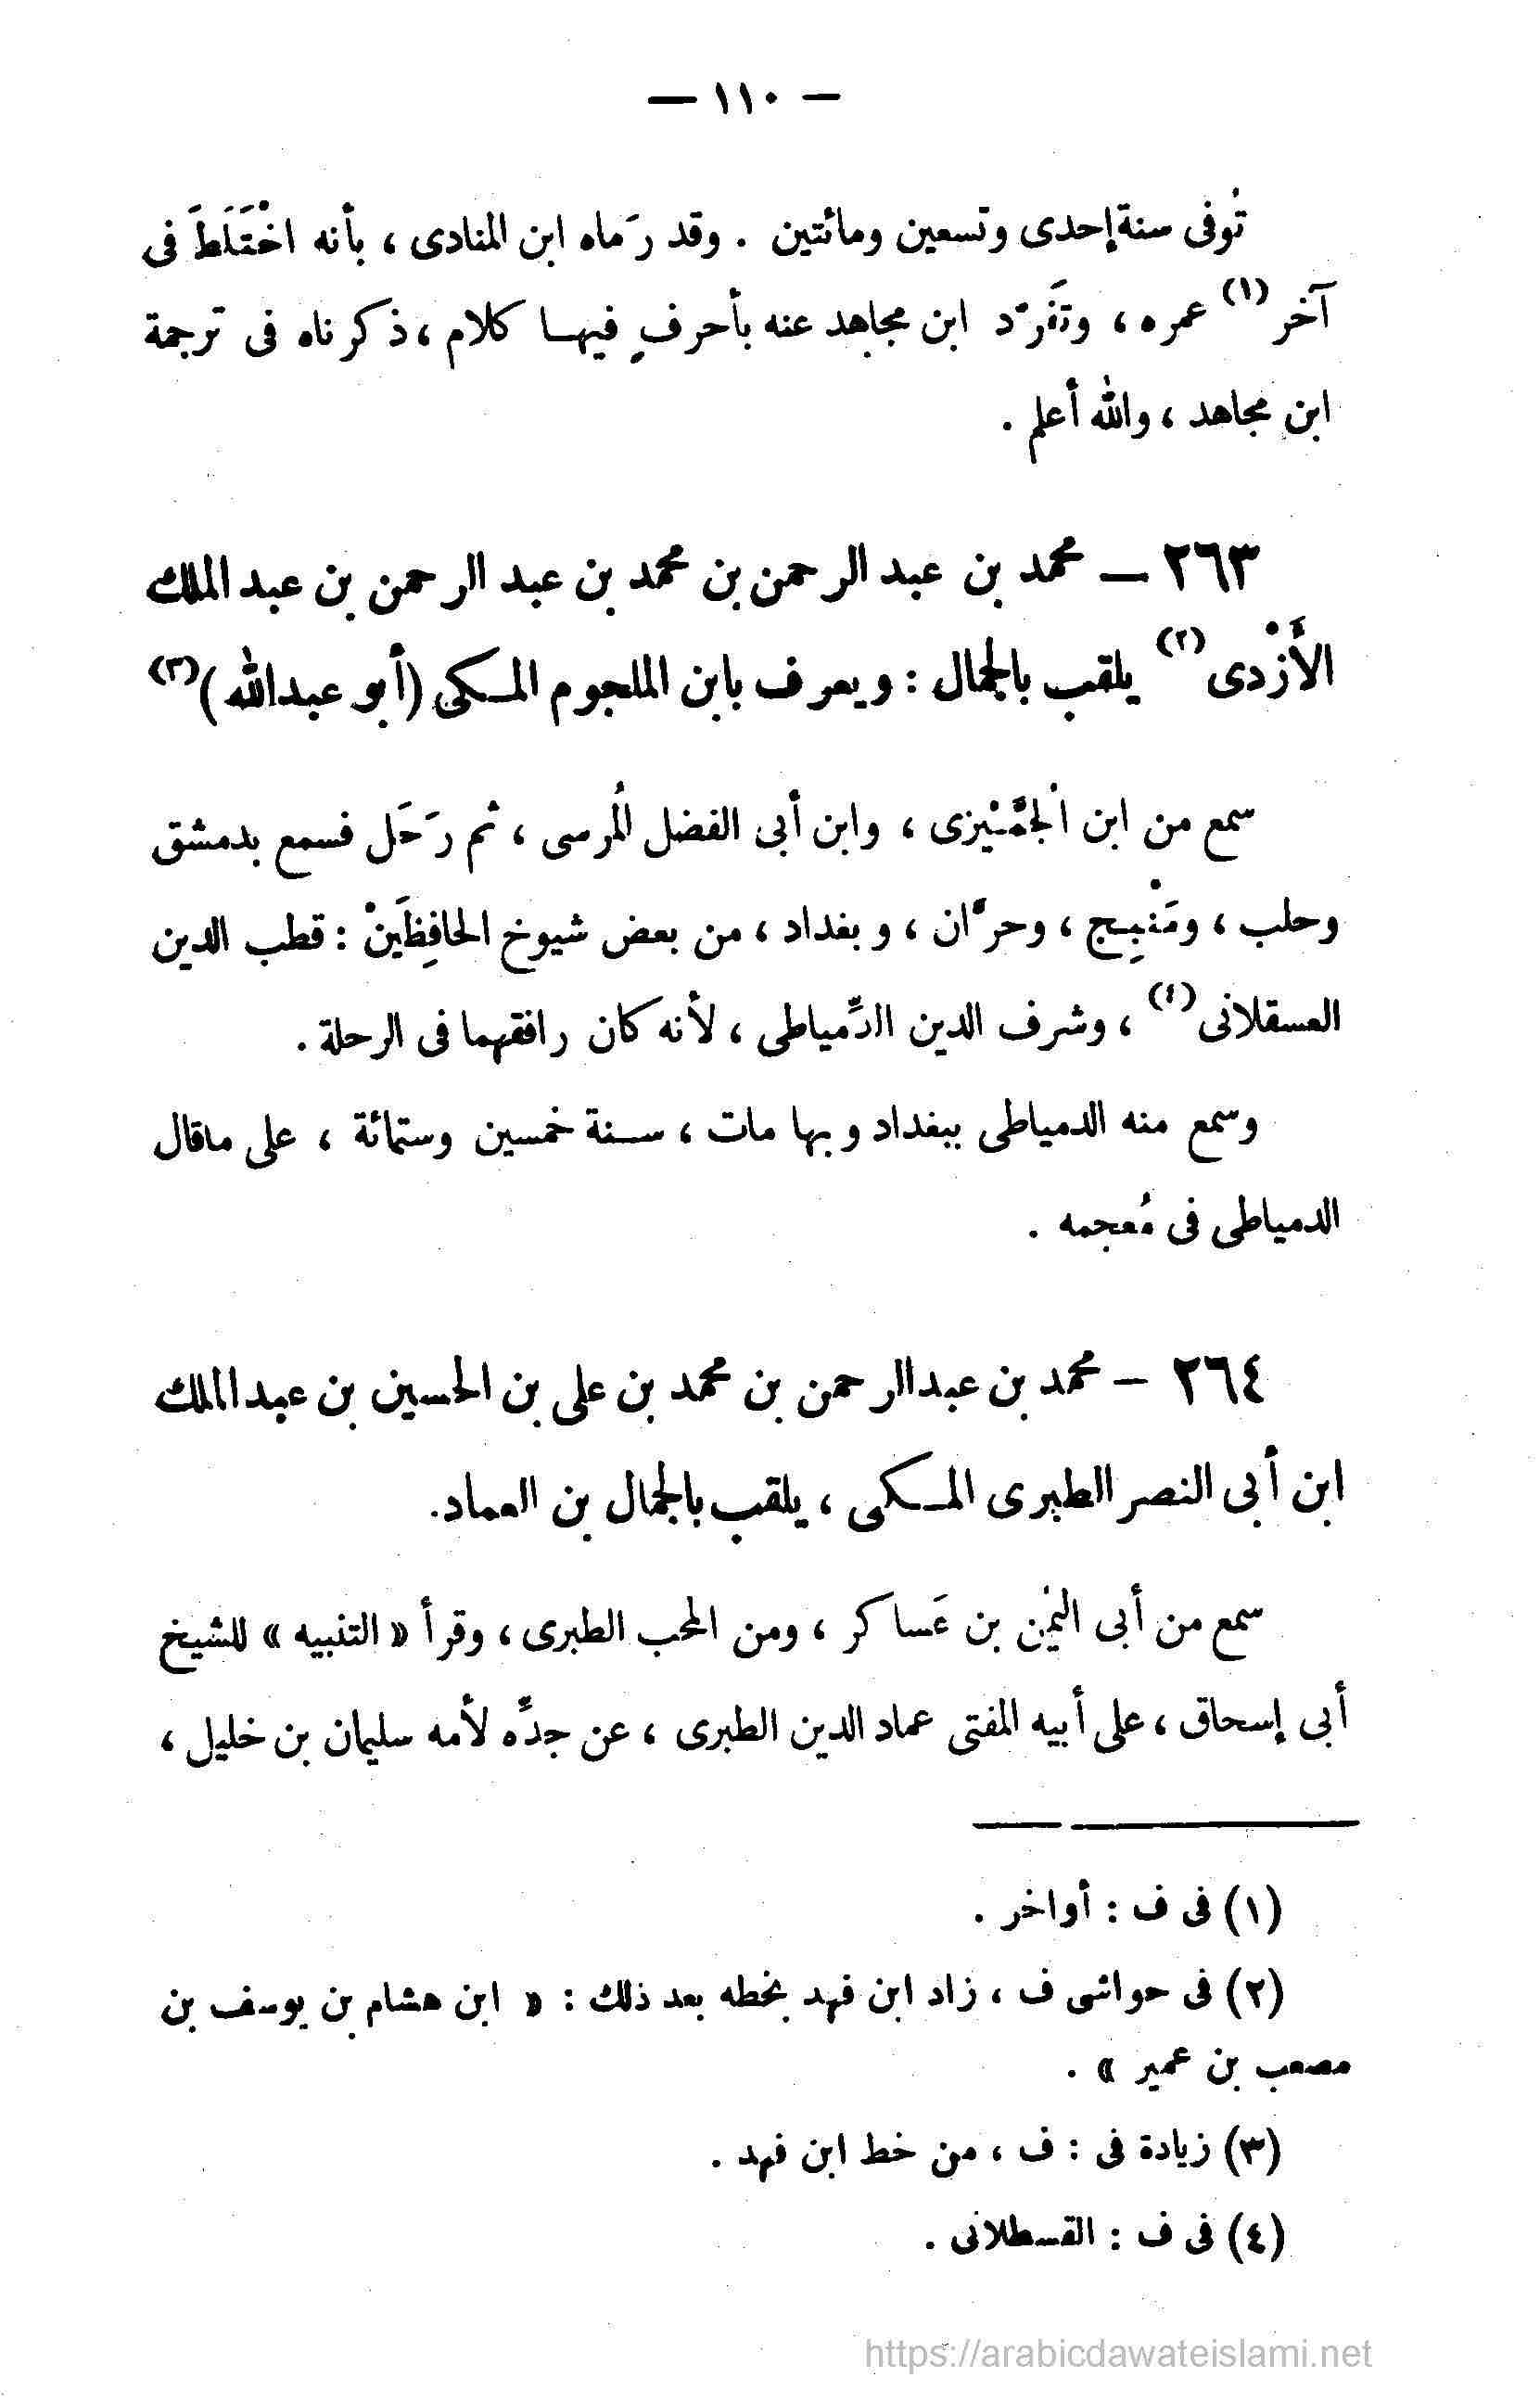 — ١١٠ —
تُوفى سنة إحدى وتسعين ومائتين . وقد رَماه ابن المنادى ، بأنه اخْتَلَطَ فى
آخر (١) عمره ، وتَفرّد ابن مجاهد عنه بأحرفٍ فيها كلام ، ذكرناه فى ترجمة
ابن مجاهد ، والله أعلم .
٢٦٣ — محمد بن عبد الرحمن بن محمد بن عبد الرحمن بن عبد الملك
الأَزْدى (٢) يلقب بالجمال : ويعرف بابن الملجوم المكى (أبو عبدالله) (٣)
سمع من ابن الجُمَّيْزى ، وابن أبى الفضل المُرسى ، ثم رَحَل فسمع بدمشق
وحلب ، ومَنْبِج ، وحرَّان ، وبغداد ، من بعض شيوخ الحافِظَيْن : قطب الدين
العسقلانى (٤) ، وشرف الدين الدِّمياطى ، لأنه كان رافقهما فى الرحلة .
وسمع منه الدمياطى ببغداد وبها مات ، سنة خمسين وستمائة ، على ماقال
الدمياطى فى مُعجمه .
٢٦٤ – محمد بن عبدالرحمن بن محمد بن على بن الحسين بن عبدالملك
ابن أبى النصر الطبرى المكى ، يلقب بالجمال بن العماد.
سمع من أبى اليُمن بن عَساكر ، ومن المحب الطبرى ، وقرأ « التنبيه » للشيخ
أبى إسحاق ، على أبيه المفتى عماد الدين الطبرى ، عن جدِّه لأمه سليمان بن خليل ،
(١) فى ف : أواخر .
(٢) فى حواشى ف ، زاد ابن فهد بخطه بعد ذلك : « ابن هشام بن يوسف بن
مصعب بن عمير » .
(٣) زيادة فى : ف ، من خط ابن فهد .
(٤) فى ف : القسطلانى .
https://arabicdawateislami.net